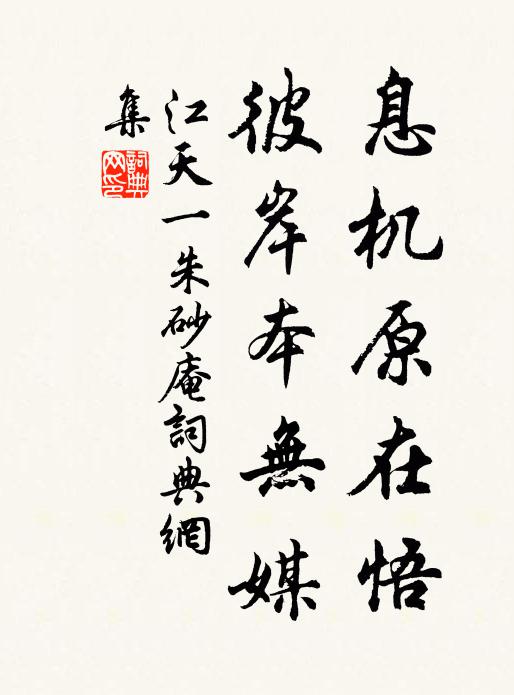 息机原在悟
彼岸本無媒
江天一朱砂庵詞典網
集
詞典网印